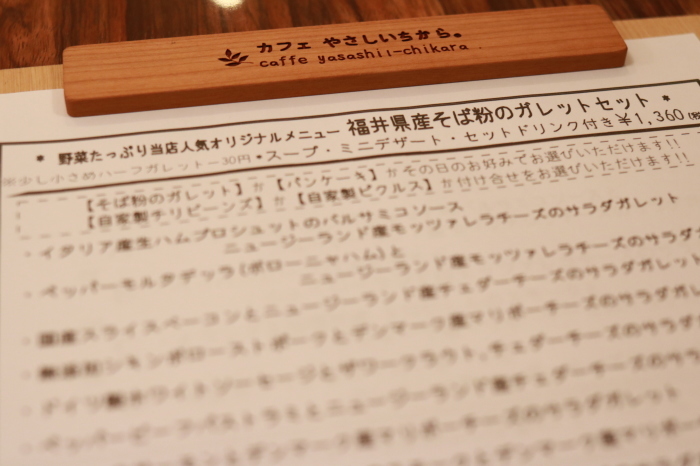 カフェ やさしいちから。
caffe yasashii-chikara
* 野菜たっぷり当店人気オリジナルメニュー 福井県産そば粉のガレットセット *
※少し小さめハーフガレット－30円 •スープ・ミニデザート・セットドリンク付き￥1,360(税
【そば粉のガレット】か【パンケーキ】かその日のお好みでお選びいただけます!!
【自家製チリビーンズ】か【自家製ピクルス】か付け合せをお選びいただけます!!
・イタリア産生ハムプロシュットのバルサミコソース
ニュージーランド産モッツァレラチーズのサラダガレット
・ペッパーモルタデッラ(ボローニャハム)と
ニュージーランド産モッツァレラチーズのサラダガ
・国産スライスベーコンとニュージーランド産チェダーチーズのサラダガレット
ローストポークとデンマーク産マリボーチーズのサラダガレ
・ドイツ製ホワイトソーセージとザワークラウト、チェダーチーズのサラダガ
・ペッパービーフパストラミとニュージーランド産チェダーチーズのサラダガ
デンマーク産マリボーチーズのサラダガレット